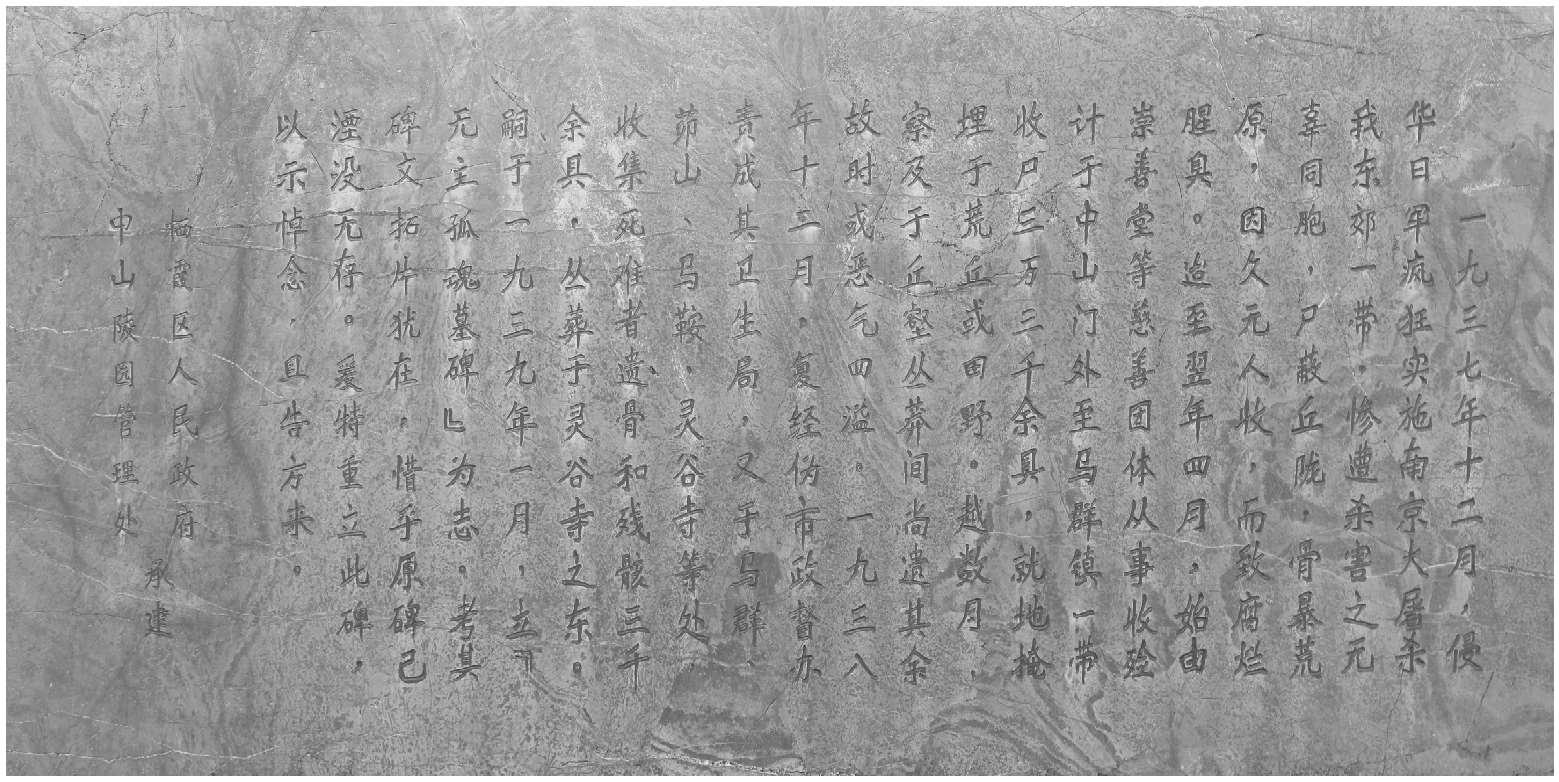 一九三七年十二月，侵
华日军疯狂实施南京大屠杀
我东郊一带，惨遭杀害之无
辜同胞，尸蔽丘陇，骨暴荒
原，因久无人收，而致腐烂
腥臭。迨至翌年四月，始由
崇善堂等慈善团体从事收殓
计于中山门外至马群镇一带
收尸三万三千余具，就地掩
埋于荒丘或田野。越数月，
察及于丘壑丛莽间尚遗其余
故时或恶气四溢。一九三八
年十二月，复经伪市政督办
责成其卫生局，又于马群、
茆山、马鞍、灵谷寺等处，
收集死难者遗骨和残骸三千
余具，丛葬于灵谷寺之东。
嗣于一九三九年一月，立『
无主孤魂墓碑』为志。考其
碑文拓片犹在，惜乎原碑已
湮没无存。爰特重立此碑，
以示悼念，且告方来。
栖霞区人民政府
中山陵园管理处
承建